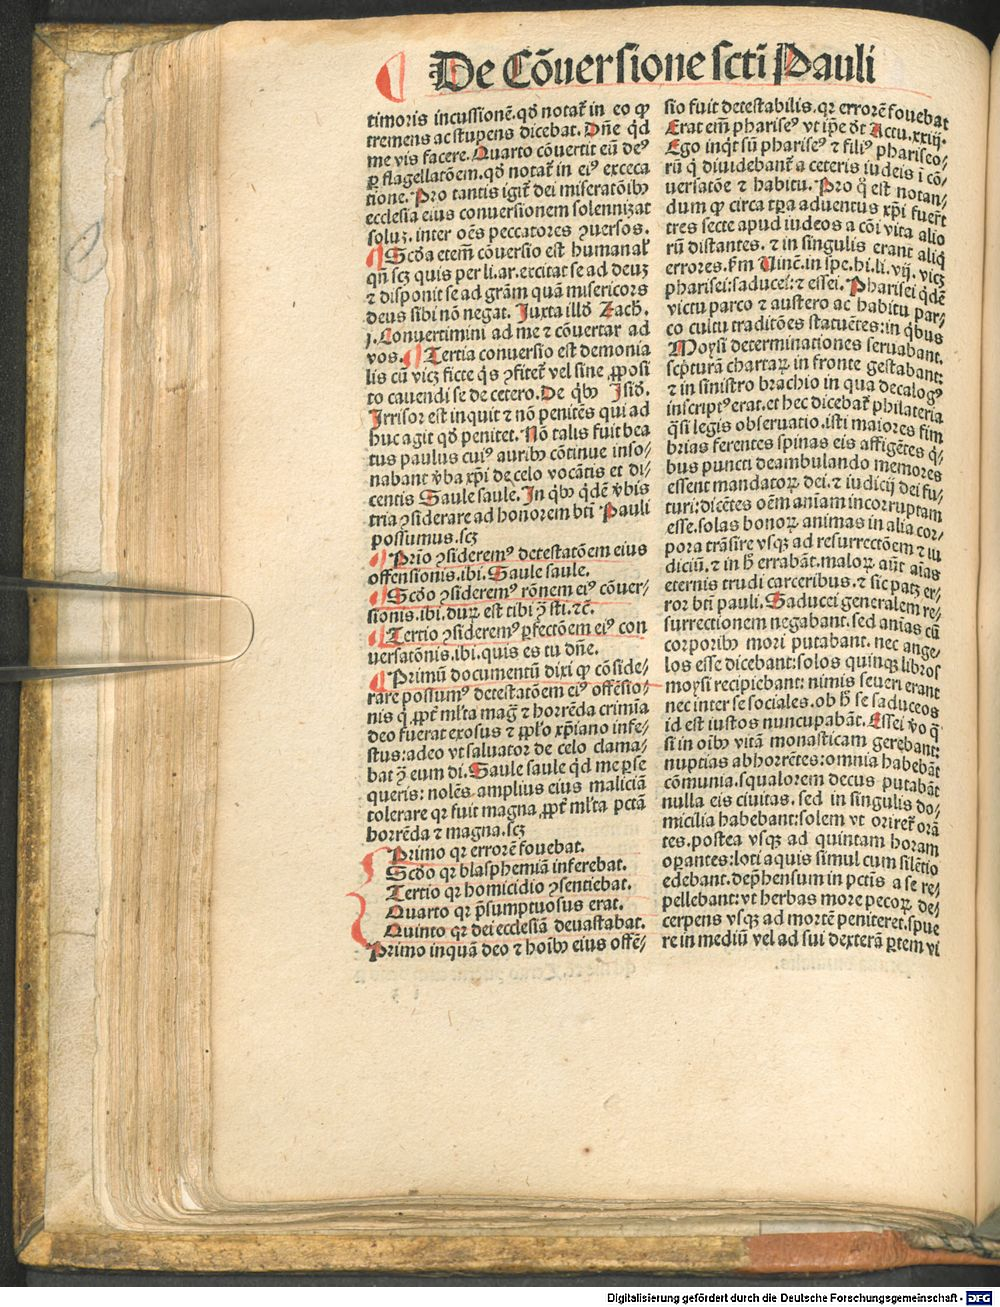 De Cōuersione scti Pauli
timoris incussionē. qđ notat᷑ in eo ꝙ
tremens ac stupens dicebat. Dn̄e qͥd
me vis facere. Quarto cōuertit eū deꝰ
ꝑ flagellatōem. qđ notat᷑ in eiꝰ exceca
tione. Pro tantis igit᷑ dei miseratōibꝫ
ecclesia eius conuersionem solennizat
soluꝫ. inter oēs peccatores ꝯuersos.
¶ Scđa etem̄ cōuersio est humanal᷑
qn̄ scꝫ quis per li. ar. excitat se ad deuꝫ
⁊ disponit se ad grām quā misericors
deus sibi nō negat. Iuxta illđ Zach.
j. Conuertimini ad me ⁊ cōuertar ad
vos. ¶ Tertia conuersio est demonia
lis cū vicꝫ ficte qͥs ꝯfitet᷑ vel sine ꝓposi
to cauendi se de cetero. De qͥbꝫ Isid.
Irrisor est inquit ⁊ nō penitēs qui ad
huc agit qđ penitet. Nō talis fuit bea
tus paulus cuiꝰ auribꝫ cōtinue inso-
nabant v̓ba xp̄i de celo vocātis et di-
centis Saule saule. In qͥbꝫ qͥdē v̓bis
tria ꝯsiderare ad honorem bti̅ Pauli
possumus. scꝫ
¶ Prio ꝯsideremꝰ detestatōem eius
offensionis. ibi. Saule saule.
¶ Scđo ꝯsideremꝰ rōnem eiꝰ cōuer-
sionis. ibi. duꝝ est tibi ꝯ̄ sti. ⁊c̄.
¶ Tertio ꝯsideremꝰ ꝑfectōem eiꝰ con
uersatōnis. ibi. quis es tu dn̄e.
¶ Primū documentū dixi ꝙ cōside-
rare possumꝰ detestatōem eiꝰ offēsio-
nis qͥ ꝓpt᷑ ml̄ta maḡ ⁊ horrēda crimīa
deo fuerat exosus ⁊ pplo xp̄iano infe-
stus: adeo vt saluator de celo clama-
bat ꝯ̄ eum di. Saule saule qͥd me ꝑse
queris: nolēs amplius eius maliciā
tolerare qꝛ fuit magna ꝓpt᷑ ml̄ta pctā
horrēda ⁊ magna. scꝫ
Primo qꝛ errorē fouebat.
Scđo qꝛ blasphemiā inferebat.
Tertio qꝛ homicidio ꝯsentiebat.
Quarto qꝛ p̄sumptuosus erat.
Quinto qꝛ dei ecclesiā deuastabat.
Primo inquā deo ⁊ hoībꝫ eius offē-
sio fuit detestabilis. qꝛ errorē fouebat
Erat em̄ phariseꝰ vt ip̄e dt̄ Actu. xxiij.
Ego inqͥt sū phariseꝰ ⁊ filiꝰ phariseo-
rū qͥ diuidebant᷑ a ceteris iudeis ī cō-
uersatōe ⁊ habitu. Pro qͦ est notan-
dum ꝙ circa tꝑa aduentus xp̄i fuer̄t
tres secte apud iudeos a cōi vita alio
rū distantes. ⁊ in singulis erant aliqͥ
errores. ẜm Uincē. in spe. hi. li. vij. vicꝫ
pharisei: saducei: ⁊ essei. Pharisei qͥdē
victu parco ⁊ austero ac habitu par-
co cultu traditōes statuētes: in qͥbus
Moysi determinationes seruabant.
scp̄turā chartaꝝ in fronte gestabant:
⁊ in sinistro brachio in qua decalogꝰ
inscriptꝰ erat. et hec dicebat᷑ philateria
qͣsi legis obseruatio. isti maiores fim
brias ferentes spinas eis affigētes qͥ-
bus puncti deambulando memores
essent mandatoꝝ dei. ⁊ iudicij dei fu-
turi: dicētes oēm aniam incorruptam
esse. solas bonoꝝ animas in alia cor-
pora trāsire vsqꝫ ad resurrectōem ⁊ iu
diciū. ⁊ in h̄ errabāt. maloꝝ aūt aīas
eternis trudi carceribus. ⁊ sic patꝫ er-
ror bti pauli. Saducei generalem re-
surrectionem negabant. sed anīas cū
corporibꝫ mori putabant. nec ange-
los esse dicebant: solos quinqꝫ libros
moysi recipiebant: nimis seueri erant
nec inter se sociales. ob h̄ se saduceos
id est iustos nuncupabāt. Essei v̓o qͣ
si in oībꝫ vitā monasticam gerebant:
nuptias abhorrētes: omnia habebāt
cōmunia. squalorem decus putabāt
nulla eis ciuitas. sed in singulis do-
micilia habebant: solem vt oriret᷑ orā
tes. postea vsqꝫ ad quintam horam
oꝑantes: loti aquis simul cum silētio
edebant. dep̄hensum in pctīs a se re-
pellebant: vt herbas more pecoꝝ de-
cerpens vsqꝫ ad mortē peniteret. spue
re in mediū vel ad sui dexterā ꝑtem vi
Digitalisierung gefördert durch die Deutsche Forschungsgemeinschaft - DFG